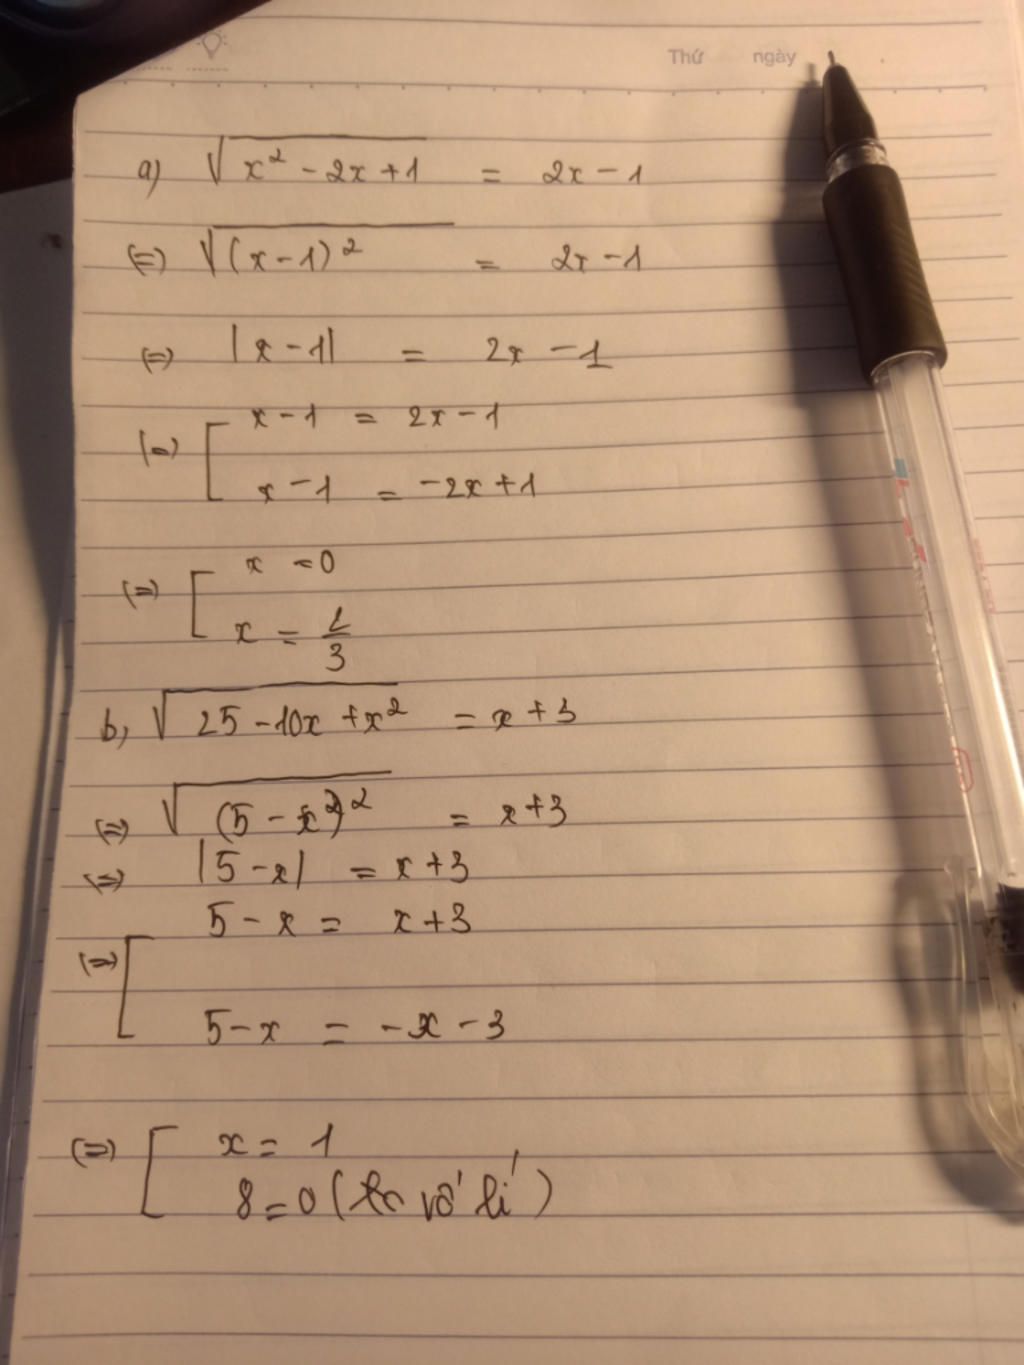 Thứ ngày
a) √(x² - 2x + 1) = 2x - 1
(=) √((x - 1)²) = 2x - 1
(=) |x - 1| = 2x - 1
(=) [ x - 1 = 2x - 1
x - 1 = -2x + 1
(=) [ x = 0
x = 2/3
b, √(25 - 10x + x²) = x + 3
(=) √((5 - x²)²) = x + 3
(=) |5 - x| = x + 3
5 - x = x + 3
(=) [
5 - x = -x - 3
(=) [ x = 1
8 = 0 ( vô lí )